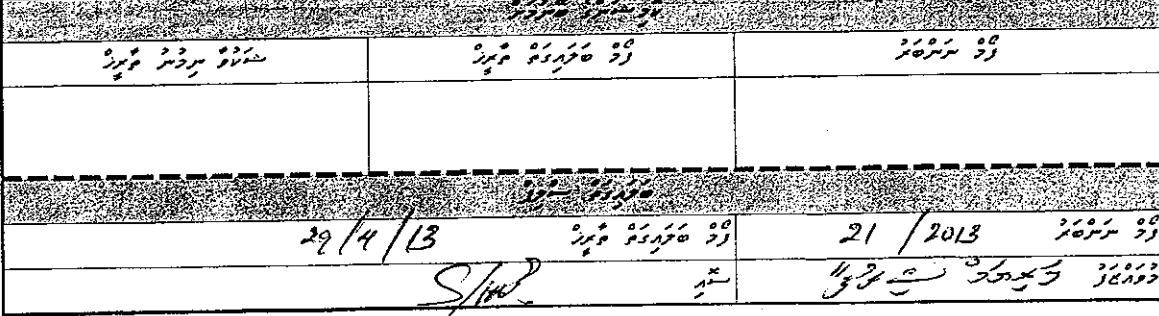 ފޯމް ނަންބަރު ފޯމް ބަލައިގަތް ތާރީޚް ޝަކުވާ ނިމުނު ތާރީޚް
ބަލައިގަތް ސްލިޕް
ފޯމް ނަންބަރު 21/2013 ފޯމް ބަލައިގަތް ތާރީޚް 29/4/13
މުވައްޒަފު މަރިޔަމް ސޮއި